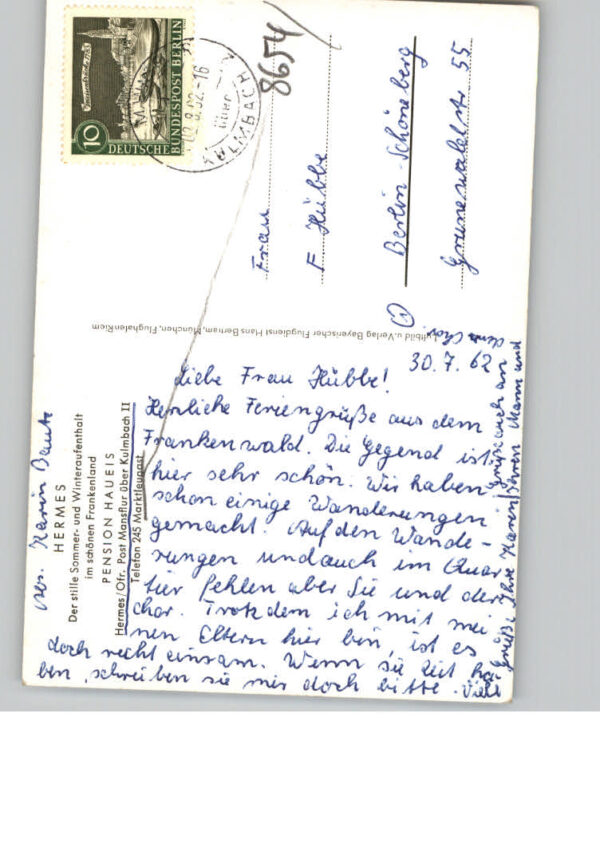 10
DEUTSCHE
BUNDESPOST BERLIN
KULMBACH
über
8654
Frau
F Hübbe
Berlin-Schöneberg
Grunewaldstr 55
Luftbild u. Verlag Bayerischer Flugdienst Hans Bertram, München, Flughafen Riem
30.7.62
Liebe Frau Hübbe!
Herzliche Feriengrüße aus dem
Frankenwald. Die Gegend ist
hier sehr schön. Wir haben
schon einige Wanderungen
gemacht. Auf den Wande-
rungen und auch im Quar-
tier fehlen aber Sie und der
Chor. Trotzdem ich mit mei-
nen Eltern hier bin, ist es
doch recht einsam. Wenn sie Zeit ha-
ben, schreiben sie mir doch bitte. Viele
Grüße Ihre Karen
Grüße auch an Ihren Mann und
dem Chor.
Abs. Karin
HERMES
Der stille Sommer- und Winteraufenthalt
im schönen Frankenland
PENSION HAUEIS
Hermes/Ofr. Post Mansflur über Kulmbach II
Telefon 245 Marktleugast